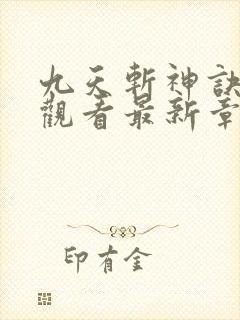 九天斬神訣
觀看最新章
印有金